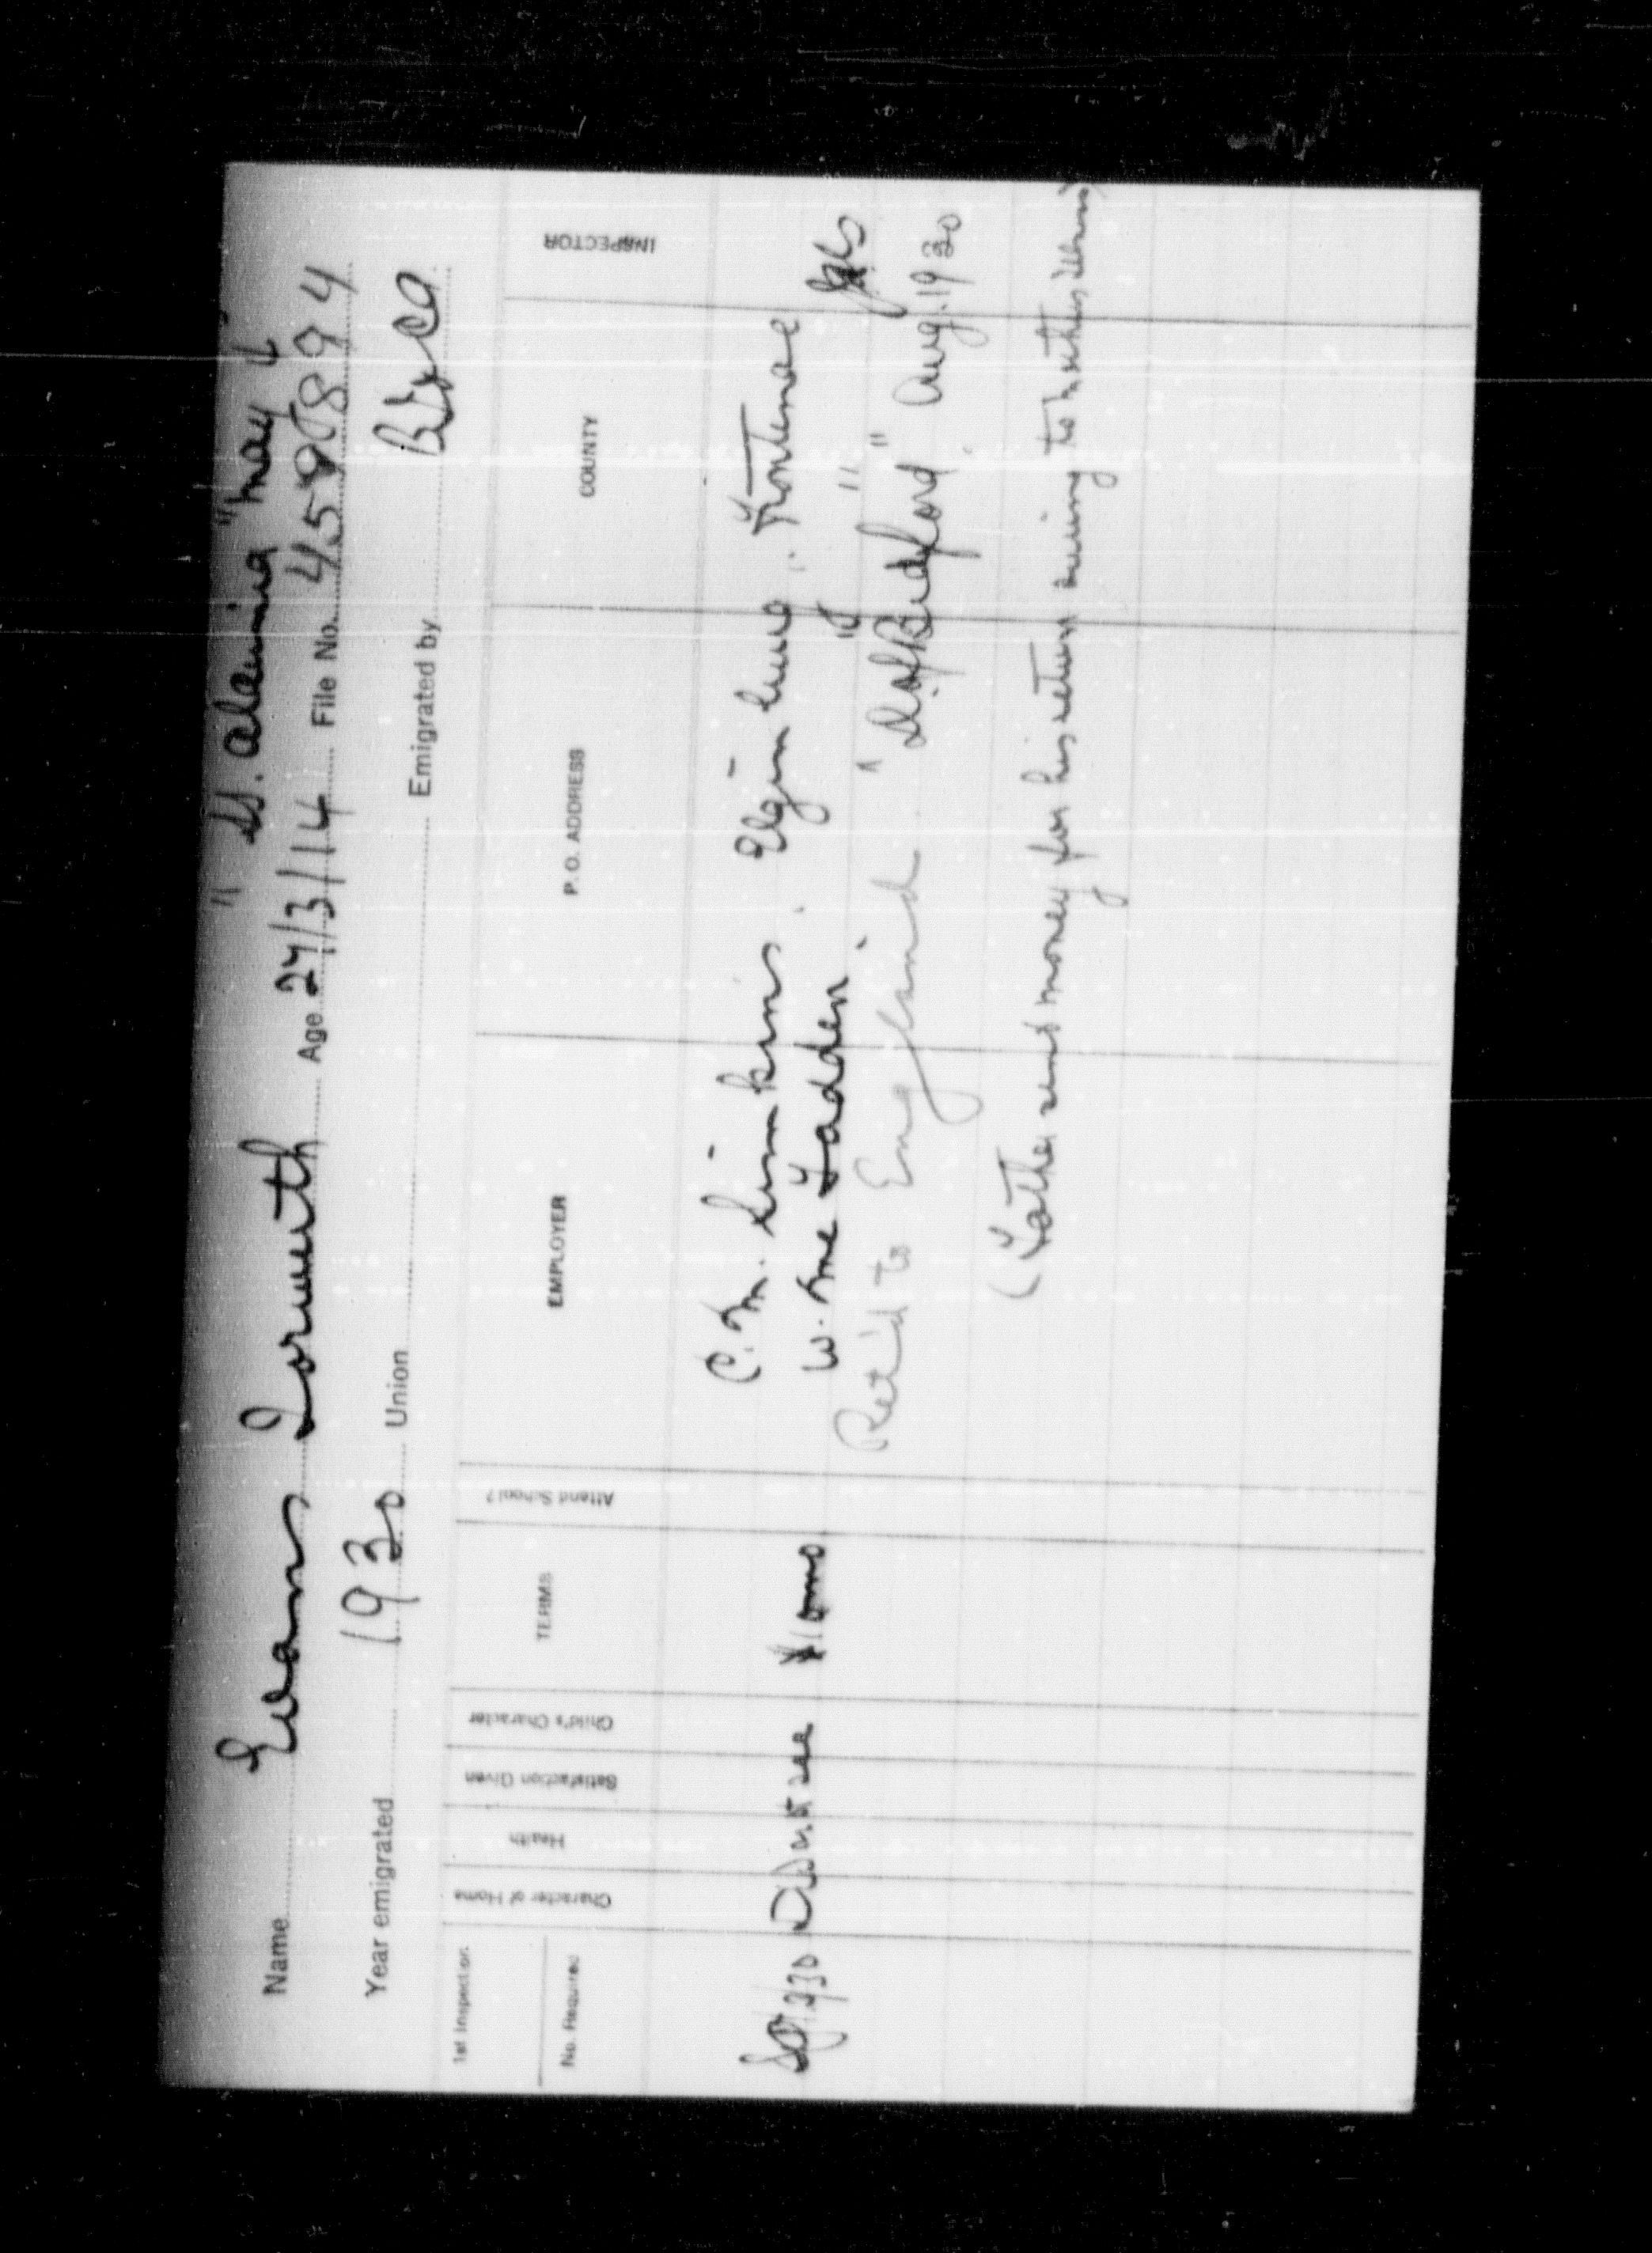 " SS. Alaunia" May
Name Evans Iorwerth Age 27/3/14 File No.
Year emigrated 1930 Union Emigrated by
1st Inspection
No. Required
Character of Home
Health
Satisfaction Given
Child's Character
TERMS
Attend School?
EMPLOYER
P. O. ADDRESS
COUNTY
INSPECTOR
C. M. Simkins. Elgin Frontenac
W. McFadden " "
Ret'd to England "Dss Bedford" Aug. 1930
(Father send money for his return owing to mother's